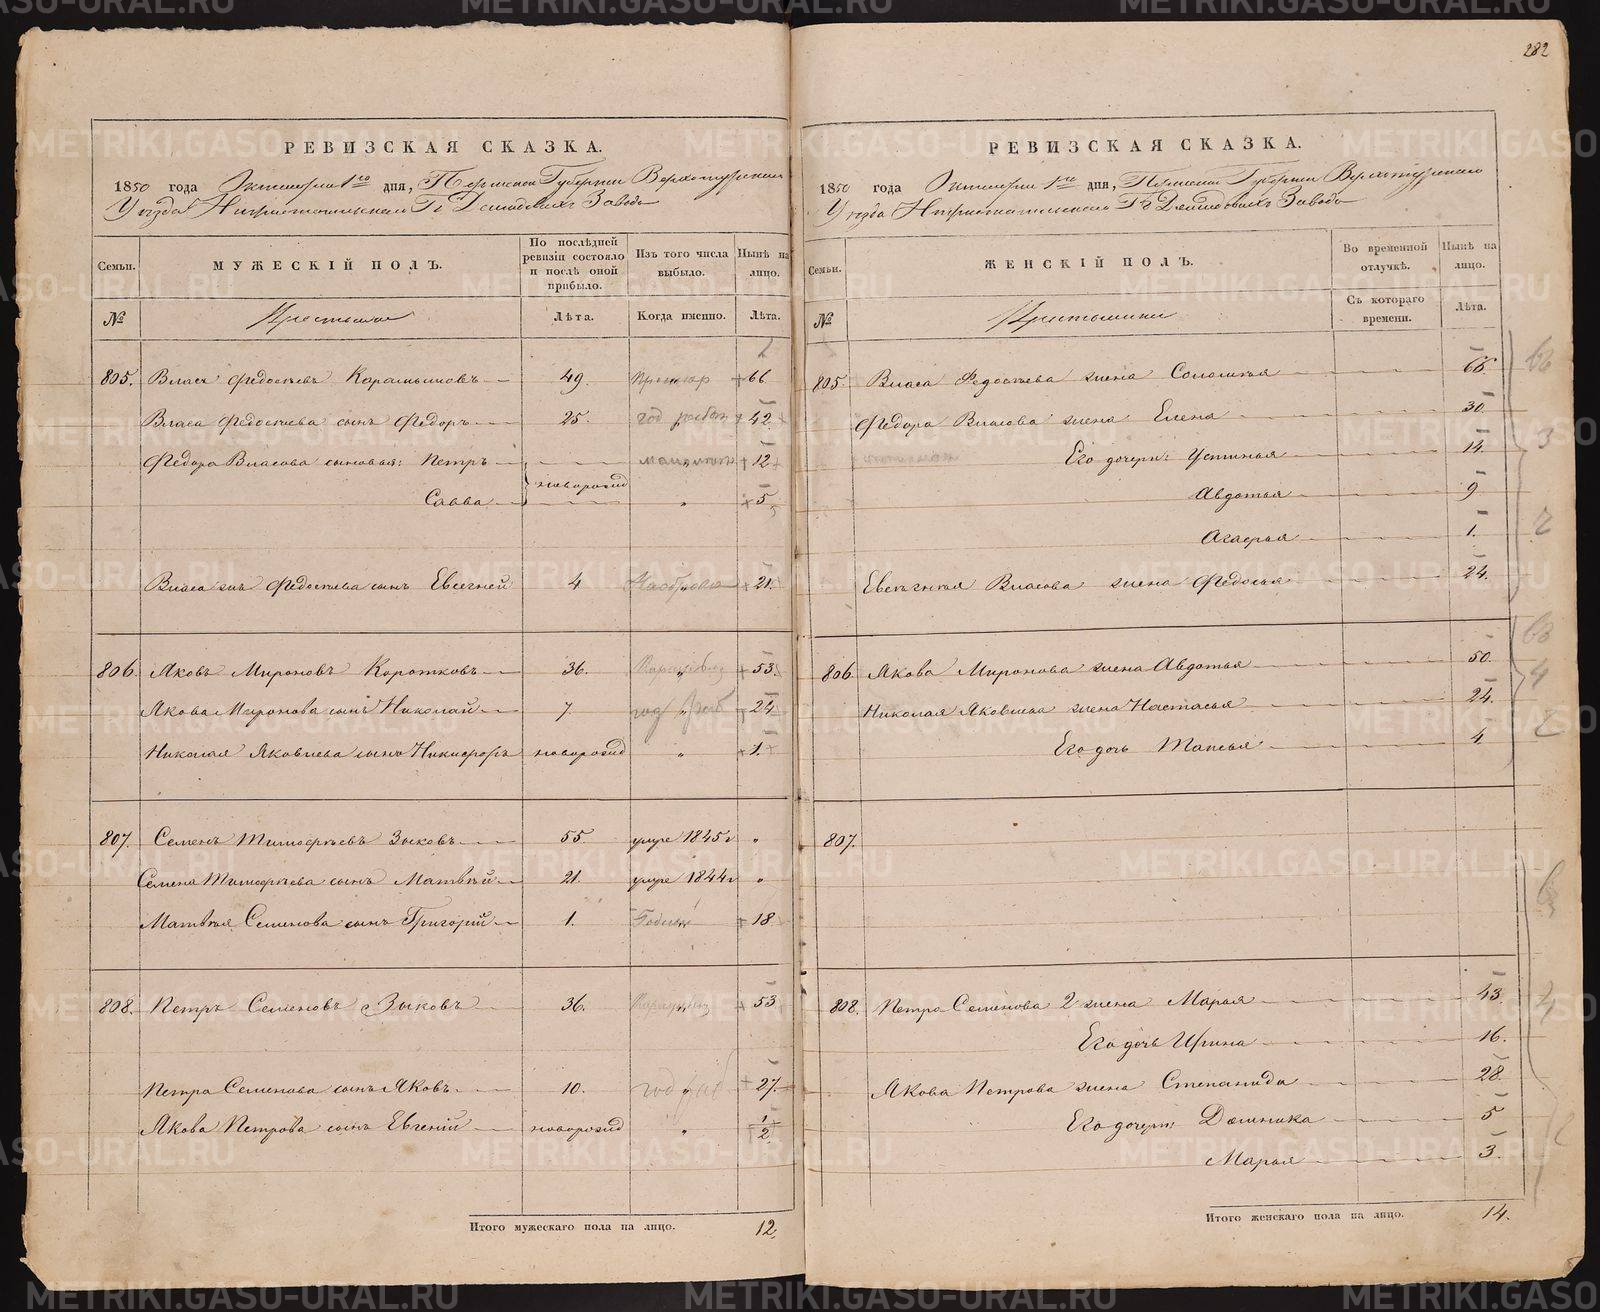 282
РЕВИЗСКАЯ СКАЗКА.
1850 года Октября 1го дня, Пермской Губернии Верхотурскаго
Уезда Нижнетагильскаго Гг Демидовыхъ Завода
Семьи. МУЖЕСКІЙ ПОЛЪ. По послѣдней ревизіи состояло и послѣ оной прибыло. Изъ того числа выбыло. Нынѣ на лицо.
№ Крестьяне Лѣта. Когда именно. Лѣта.
805. Власъ Федосѣевъ Карамышовъ 49. 66
Власа Федосѣева сынъ Федоръ 25. год работ 42
Федора Власова сыновья: Петръ новорожд 12
Савва " 5
Власа Федосѣева сынъ Евсегней 4 21.
806. Яковъ Мироновъ Коротковъ 36. " 53.
Якова Миронова сынъ Николай 7. год раб 24
Николая Яковлева сынъ Никифоръ новорожд " 1.
807. Семенъ Тимофѣевъ Зыковъ 55. умре 1845г "
Семена Тимофѣева сынъ Матвѣй 21. умре 1844г "
Матвѣя Семенова сынъ Григорій 1. Годный 18
808. Петръ Семеновъ Зыковъ 36. " 53
Петра Семенова сынъ Яковъ 10. год раб 27.
Якова Петрова сынъ Евгеній новорожд " 1/2
Итого мужескаго пола на лицо. 12.
РЕВИЗСКАЯ СКАЗКА.
1850 года Октября 1го дня, Пермской Губернии Верхотурскаго
Уезда Нижнетагильскаго Гг Демидовыхъ Завода
Семьи. ЖЕНСКІЙ ПОЛЪ. Во временной отлучкѣ. Нынѣ на лицо.
№ Крестьянки Съ котораго времени. Лѣта.
805. Власа Федосѣева жена Соломѣя 66.
Федора Власова жена Елена 30.
Его дочери: Устинья 14.
Авдотья 9
Агафья 1.
Евсѣгнѣя Власова жена Федосья 24.
806. Якова Миронова жена Авдотья 50.
Николая Яковлева жена Настасья 24.
Его дочь Таисья 4
807.
808. Петра Семенова 2 жена Марья 43.
Его дочь Ирина 16.
Якова Петрова жена Степанида 28.
Его дочери: Домника 5
Марья 3.
Итого женскаго пола на лицо. 14.
METRIKI.GASO-URAL.RU